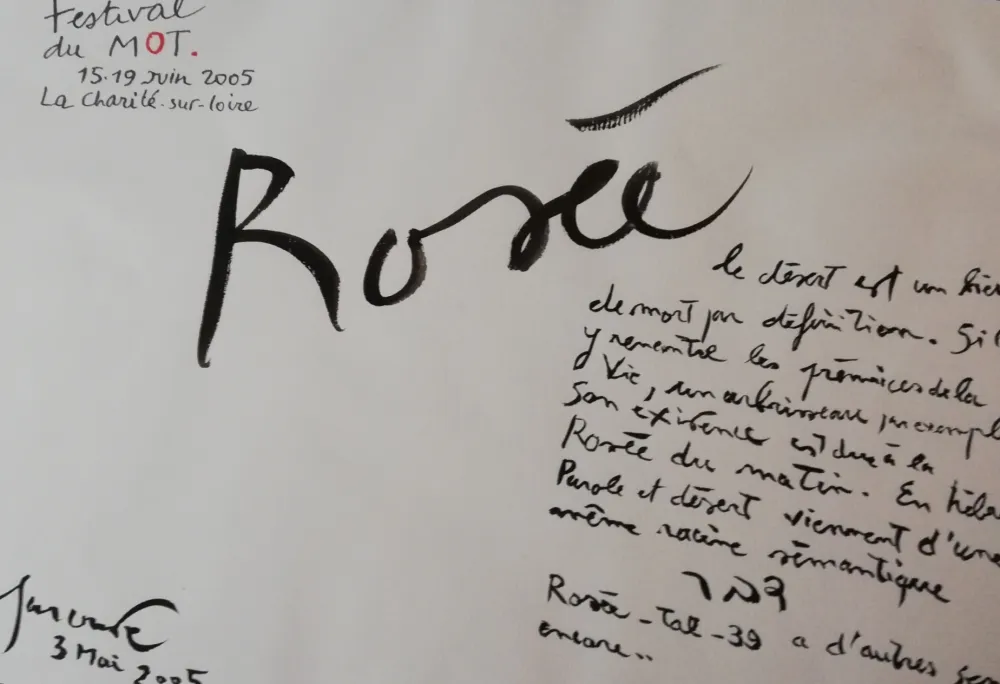 Festival
du MOT.
15.19 Juin 2005
La Charité-sur-loire
Rosée
le désert est un
de mort par définition. Si
y rencontre les prémaices de la
Vie, un arbrisseau par exempl
Son existence est due à la
Rosée du matin. En hébr
Parole et désert viennent d'une
même racine sémantique
דבר
Rosée - Tal - 39 a d'autres sen
encore..
3 Mai 2005